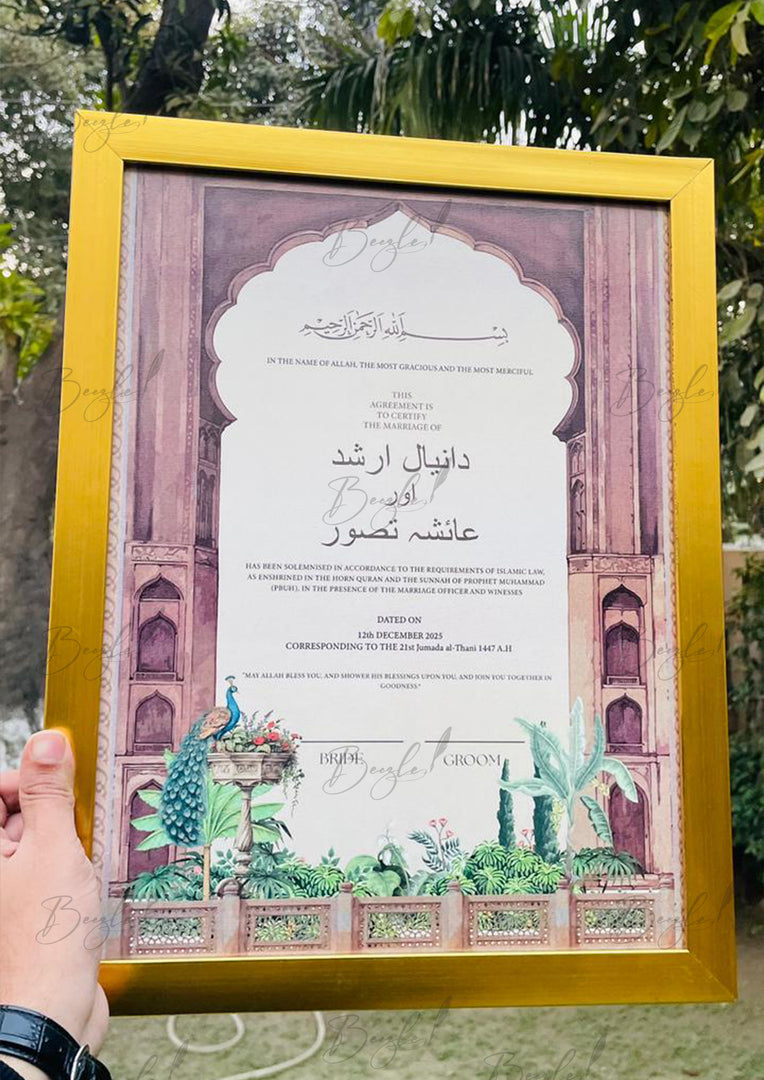 بسم الله الرحمن الرحيم
IN THE NAME OF ALLAH, THE MOST GRACIOUS AND THE MOST MERCIFUL
THIS
AGREEMENT IS
TO CERTIFY
THE MARRIAGE OF
دانیال ارشد
اور
عائشہ تصور
HAS BEEN SOLEMNISED IN ACCORDANCE TO THE REQUIREMENTS OF ISLAMIC LAW,
AS ENSHRINED IN THE HORN QURAN AND THE SUNNAH OF PROPHET MUHAMMAD
(PBUH), IN THE PRESENCE OF THE MARRIAGE OFFICER AND WINESSES
DATED ON
12th DECEMBER 2025
CORRESPONDING TO THE 21st Jumada al-Thani 1447 A.H
"MAY ALLAH BLESS YOU, AND SHOWER HIS BLESSINGS UPON YOU, AND JOIN YOU TOGETHER IN
GOODNESS."
BRIDE GROOM
Beezle!